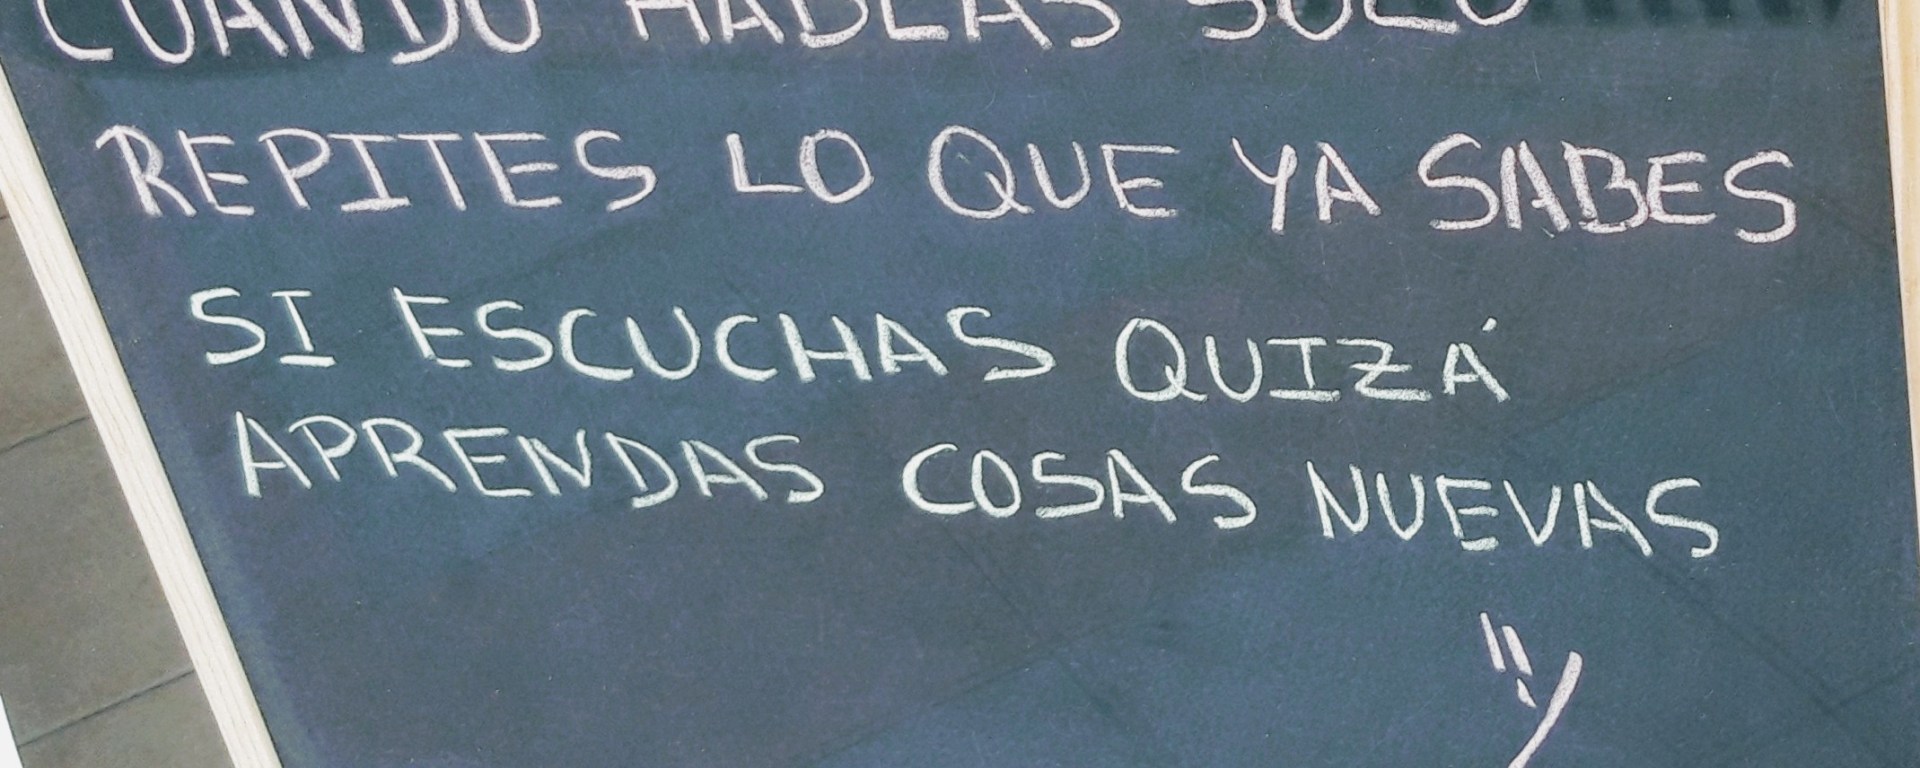 CUANDO HABLAS SOLO
REPITES LO QUE YA SABES
SI ESCUCHAS QUIZÁ
APRENDAS COSAS NUEVAS